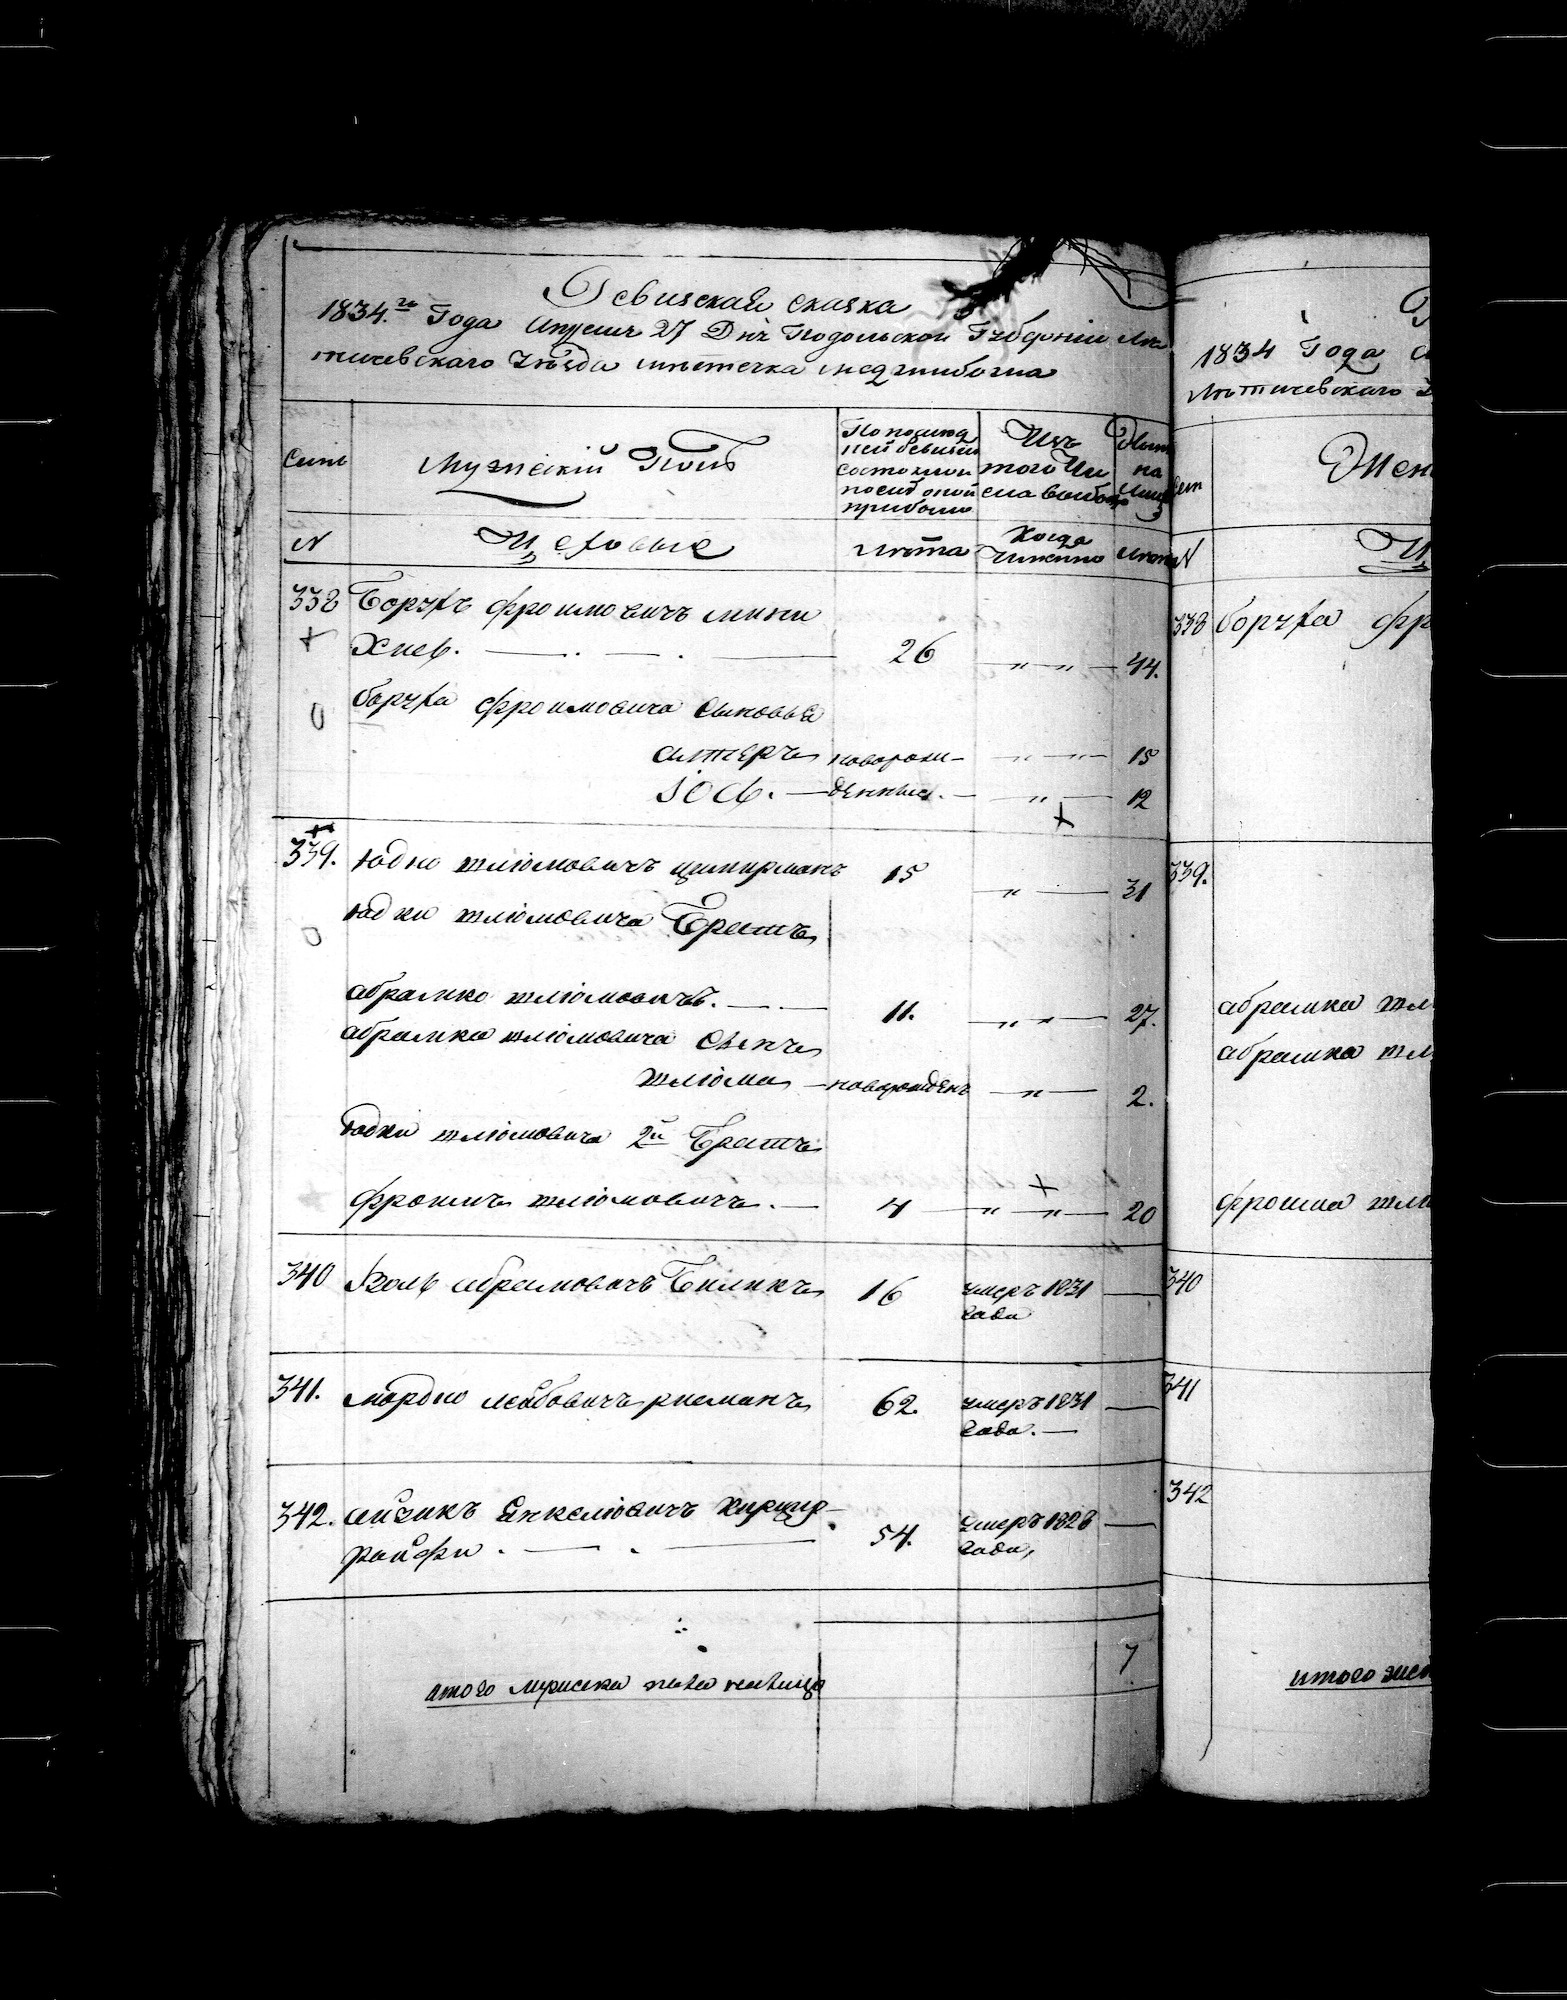 Ревизская сказка
1834.го Года Апреля 27 Дня Подольской Губернии Ле
тичевскаго Уезда местечка меджибожа
Семьи
Мужескій Полъ
По послед
ней ревизіи
состояло и
после оной
прибыло
Изъ
того Чи
сла выбыло
Ныне
на
лицо
N
Евреи
лета
Когда
Именно
лета
338 Борухъ фроимовичъ мини
Хнев. 26 " " 44.
боруха фроимовича сыновья
алтеръ новорож- " " 15
Іос. — денные. — " — 12
339. Юдко шліомовичъ цимирманъ 15 " 31
Юдки шліомовича Братъ
абрамко шліомовичъ. 11. " " 27.
абрамка шліомовича сынъ
шліома — новорожденъ — " — 2.
Юдки шліомовича 2й Братъ
фроимъ шліомовичъ. — 4 — " " — 20
340 Волъ абрамовичъ Биликъ 16 умеръ 1831
года
341. мордко лейбовичъ рисманъ 62. умеръ 1831
года. —
342. айзикъ Янкеліовичъ Хирцир-
райфи. 54. умеръ 1828
года,
7
итого мужеска пола налицо
1834 Года
летичевскаго
Жен
N
338 боруха фр
339.
абрамка шл
абрамка шл
фроима шлі
340
341
342
итого жен